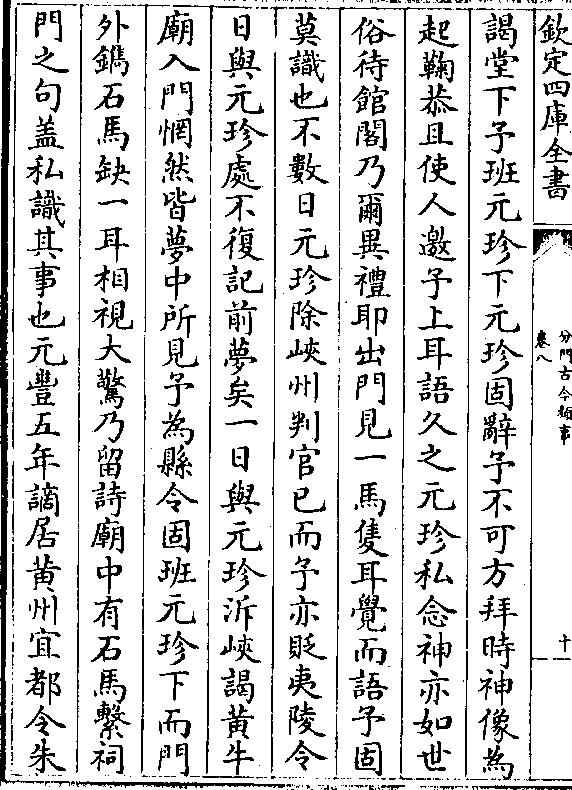 欽定四庫全書
分門古今類事
卷八
十
謁堂下予班元珍下元珍固辭予不可方拜時神像為
起鞠恭且使人邀予上耳語久之元珍私念神亦如世
俗待館閣乃爾異禮耶出門見一馬隻耳覺而語予固
莫識也不數日元珍除峽州判官已而予亦貶夷陵令
日與元珍處不復記前夢矣一日與元珍泝峽謁黄牛
廟入門惘然皆夢中所見予為縣令固班元珍下而門
外鐫石馬缺一耳相視大驚乃留詩廟中有石馬繫祠
門之句盖私識其事也元豐五年謫居黄州宜都令朱